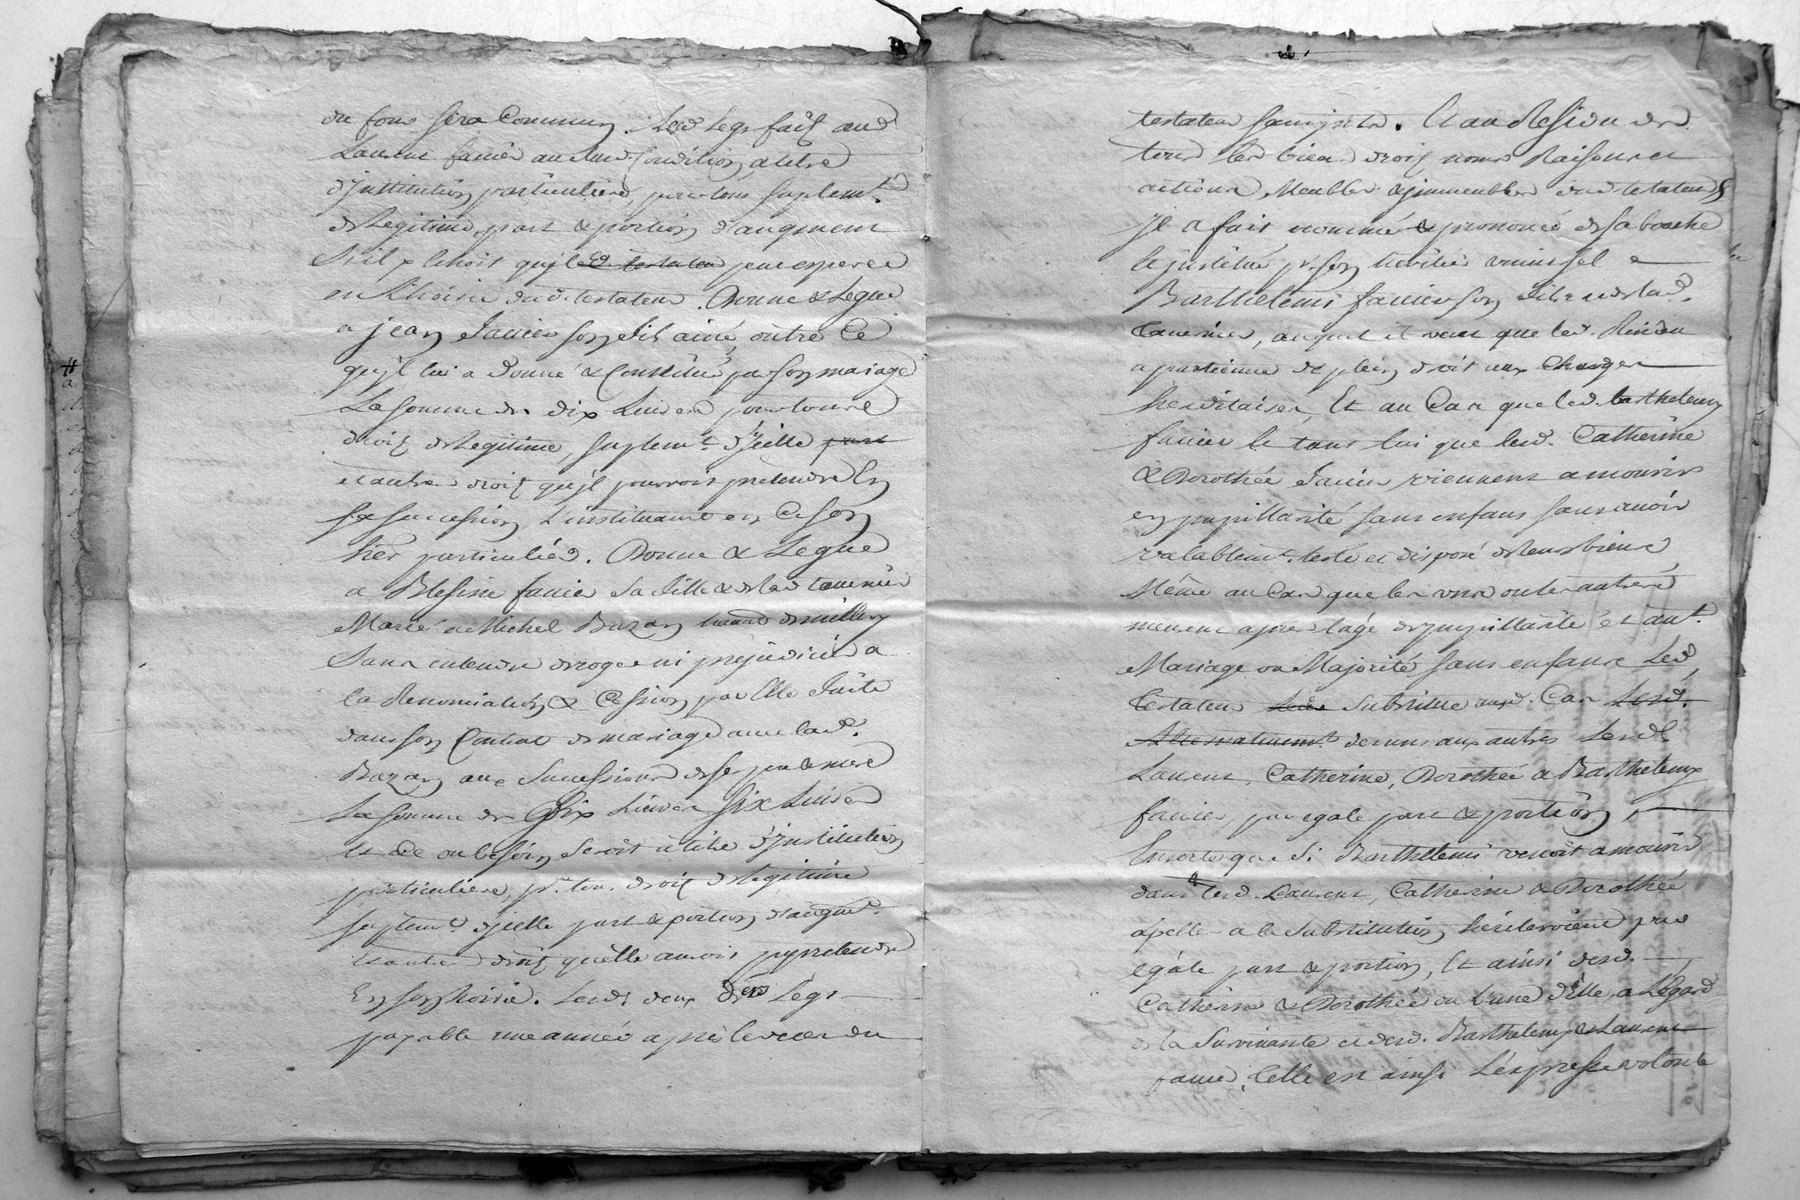 du four sera Commun. Lesd Legs fait aud
Laurent favier aud condition, a titre
d'institution particuliere, pour tous suplemt.
de Legitime, part & portion d'augment
S'il y Echoit qu'il led testateur peut esperer
en l'hoirie dud. testateur. Donne & Legue
a jean favier son fils ainé, outre ce
qu'jl lui a donné & Constitué par son mariage
La somme de dix Livres pour tous
droit de Legitime, suplemt. d'jcelle part
et autres droit qu'jl pourroit pretendre En
sa succession L'instituant en ce son
her particulier. Donne & Legue
a favier sa fille & de lad tavernier
Mariée a Michel Buzan
Sans entendre deroger ni prejudicier a
la Renonciation & Cession par Elle faite
dans son Contrat de mariage avec led.
Buzan aux Successions de ses pere & mere
La somme de Six Livres Six Livres
Et ce ou besoin Seroit a titre d'jnstitution
particuliere, pr. tous droit de Legitime
suplemt. d'jcelle part & portion d'augmt.
et autres droit qu'elle auroit py pretendre
En son hoirie. Lesd. deux Legs
payable une année après le deces du
testateur sans jnterets. Et au Residu de
tous ses biens droit noms Raisons et
actions, Meubles & jmmeubles dud testateur
Jl a fait nommé & prononcé de sa bouche
& jnstitué pr. son heritier universel
Barthelemi favier son fils & de lad.
tavernier, auquel il veut que led. Residu
apartienne de plein droit aux Charges
hereditaires, Et au Cas que led. barthelemy
favier & tant lui que lesd. Catherine
& Dorothée favier viennent a mourir
en pupillarité sans enfans sans avoir
valablemt. testé et disposé de leurs biens
Même au Cas que les uns ou les autres
meurent après l'age de pupillarité et avt.
Mariage ou Majorité sans enfans Led.
testateur Substitue aud. Cas Lesd.
Alternativemt. des uns aux autres Lesd.
Laurent, Catherine, Dorothée & Barthelemy
favier, par egale part & portion,
Ensorte que Si Barthelemi venoit a mourir
dans led. Laurent, Catherine & Dorothée
apellés a la Substitution, heriteroient par
egale part & portion, Et ainsi desd.
Catherine & Dorothée ou l'une d'elle, a l'égard
de la Survivante et desd. Barthelemy & Laurent
favier, telle est ainsi L'expresse volonté